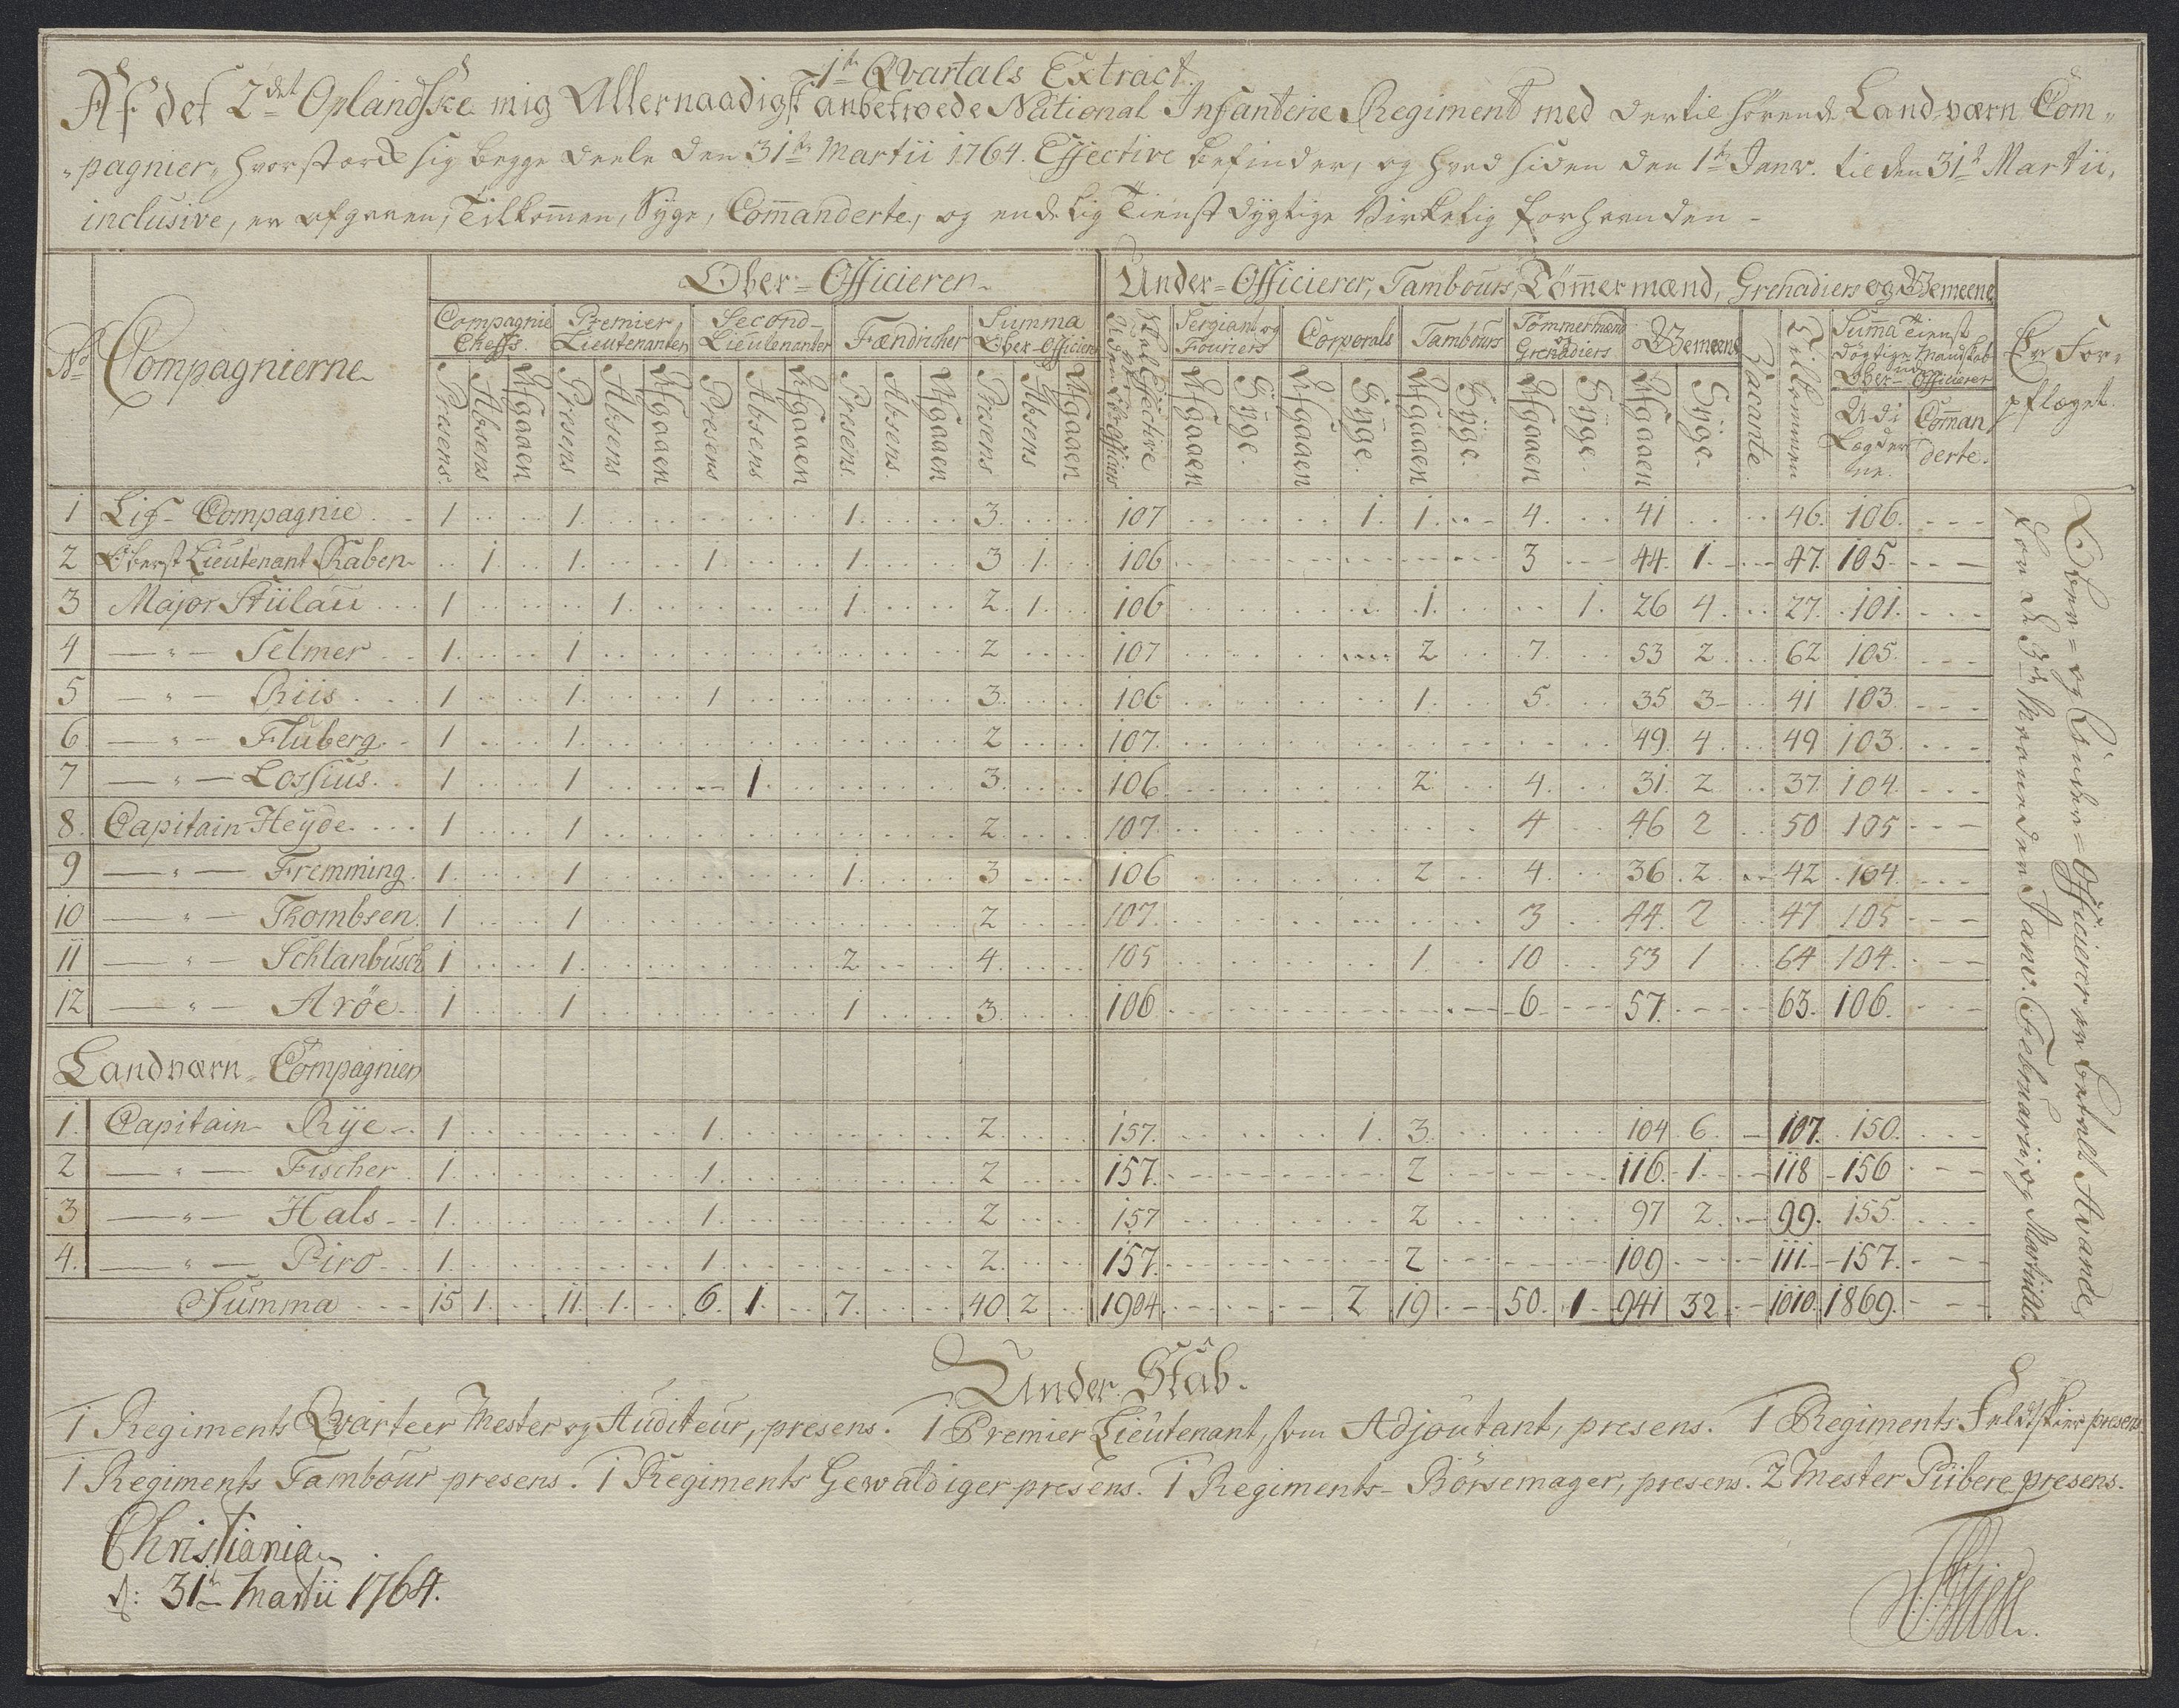 1ste Qvartals Extract.
Af det 2det Oplandske mig Allernaadigst anbetroede National Infanterie Regiment med dertil hörende Land-værn Com-
pagnier, hvor stærck sig begge deele den 31te Martii 1764. Effective befinder, og hvad siden den 1te Janv. til den 31te Martii,
inclusive, er afgaaen, Tilkommen, Syge, Com̄anderte, og endelig Tienstdygtige Virkelig forhaanden
No Compagnierne
Ober-Officierer
Under-Officierer, Tambours, Töm̄ermænd, Grenadiers og Gemeene
Compagnie Cheffs. Premier Lieutenanter Second-Lieutenanter Fændricher Summa Ober-Officierer
Sergiant og Fouriers Corporals Tambours Tömmermænd og Grenadiers Gemeene Vacante Tilkommen Summa Tienst dögtige Mandskab uden Ober-Officierer
Er For-pfleget.
Presens. Absens Afgaaen Presens Absens Afgaaen Presens Absens Afgaaen Presens. Absens. Afgaaen Presens Absens Afgaaen
Afgaaen Syge. Afgaaen Syge. Afgaaen Syge. Afgaaen Syge. Afgaaen Syge. Udi Lægderne. Com̄anderte.
1 Lif-Compagnie 1 1 1 3 107 1 1 4 41 46 106
2 Oberst Lieutenant Raben 1 1 1 1 3 1 106 3 44 1 47 105
3 Major Stülau 1 1 1 2 1 106 1 1 26 4 27 101
4 — " — Selmer 1 1 2 107 2 7 53 2 62 105
5 — " — Riis 1 1 1 3 106 1 5 35 3 41 103
6 — " — Fluberg 1 1 2 107 49 4 49 103
7 — " — Lossius 1 1 1 3 106 2 4 31 2 37 104
8. Capitain Heyde 1 1 2 107 4 46 2 50 105
9 — " — Fremming 1 1 1 3 106 2 4 36 2 42 104
10 — " — Thombsen 1 1 2 107 3 44 2 47 105
11 — " — Schlanbusch 1 1 2 4 105 1 10 53 1 64 104
12 — " — Aröe 1 1 1 3 106 6 57 63 106
Landværn Compagnier
1. Capitain Rye 1 1 2 157 1 3 104 6 107 150
2 — " — Fischer 1 1 2 157 2 116 1 118 156
3 — " — Hals 1 1 2 157 2 97 2 99 155
4. — " — Piro 1 1 2 157 2 109 111 157
Summa 15 1 11 1 6 1 7 40 2 1904 2 19 50 1 941 32 1010 1869
Ober- og Under-Officierer er betalt Avance
for de 3de Maaneder Janv. Februarii, og Martii
Under Stab.
1 Regiments Qvarteer Mester og Auditeur, presens. 1 Premier Lieutenant, som Adjoutant, presens. 1 Regiments Feldtskier presens
1 Regiments Tambour presens. 1 Regiments Gewaldiger presens. 1 Regiments-Börsemager, presens. 2 Mester Piibere presens.
Christiania
d: 31te Martii 1764.